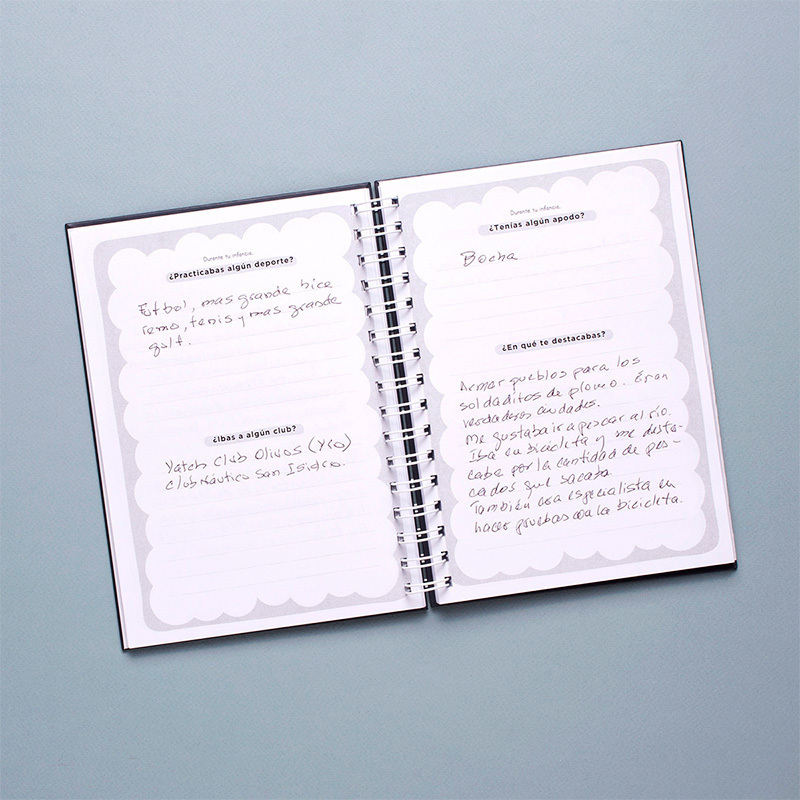 Durante tu infancia,
¿Practicabas algún deporte?
Futbol, mas grande hice
remo, tenis y mas grande
golf.
¿Ibas a algún club?
Yatch Club Olivos (YCO)
Club Náutico San Isidro.
Durante tu infancia,
¿Tenías algún apodo?
Bocha
¿En qué te destacabas?
Armar pueblos para los
soldaditos de plomo. Eran
verdaderas ciudades.
Me gustaba ir a pescar al río.
Iba en bicicleta y me desta-
caba por la cantidad de pes-
cados que sacaba.
También era especialista en
hacer pruebas con la bicicleta.